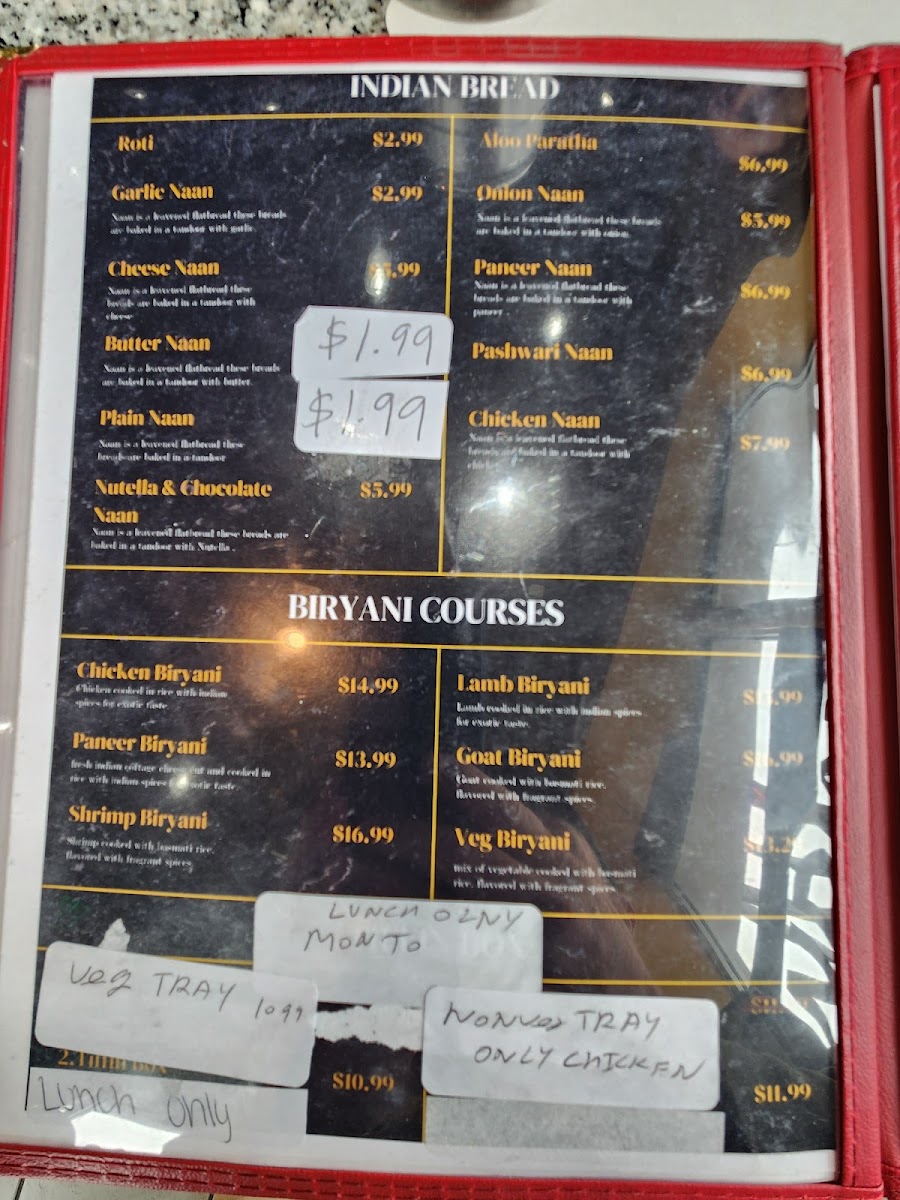 INDIAN BREAD
Roti $2.99
Garlic Naan $2.99
Naan is a leavened flatbread these breads
are baked in a tandoor with garlic
Cheese Naan .99
Naan is a leavened flatbread these
breads are baked in a tandoor with
cheese
Butter Naan $1.99
Naan is a leavened flatbread these breads
are baked in a tandoor with butter.
Plain Naan $1.99
Naan is a leavened flatbread these
breads are baked in a tandoor
Nutella & Chocolate $5.99
Naan
Naan is a leavened flatbread these breads are
baked in a tandoor with Nutella .
Aloo Paratha
$6.99
Onion Naan
$5.99
Naan is a leavened flatbread these breads
are baked in a tandoor with onion.
Paneer Naan
$6.99
Naan is a leavened flatbread these
breads are baked in a tandoor with
paneer
Pashwari Naan
$6.99
Chicken Naan
$7.99
Naan is a leavened flatbread these
breads are baked in a tandoor with
chicken
BIRYANI COURSES
Chicken Biryani $14.99
Chicken cooked in rice with indian
spices for exotic taste
Paneer Biryani $13.99
fresh indian cottage cheese cut and cooked in
rice with indian spices for exotic taste
Shrimp Biryani $16.99
Shrimp cooked with basmati rice,
flavored with fragrant spices
Lamb Biryani .99
Lamb cooked in rice with indian spices
for exotic taste.
Goat Biryani .99
Goat cooked with basmati rice,
flavored with fragrant spices
Veg Biryani
mix of vegetable cooked with basmati
rice, flavored with fragrant spices
LUNCH OLNY
MON TO
BOX
Veg TRAY 1099
2.
$10.99
Lunch only
NONVeg TRAY
ONLY CHICKEN
$11.99